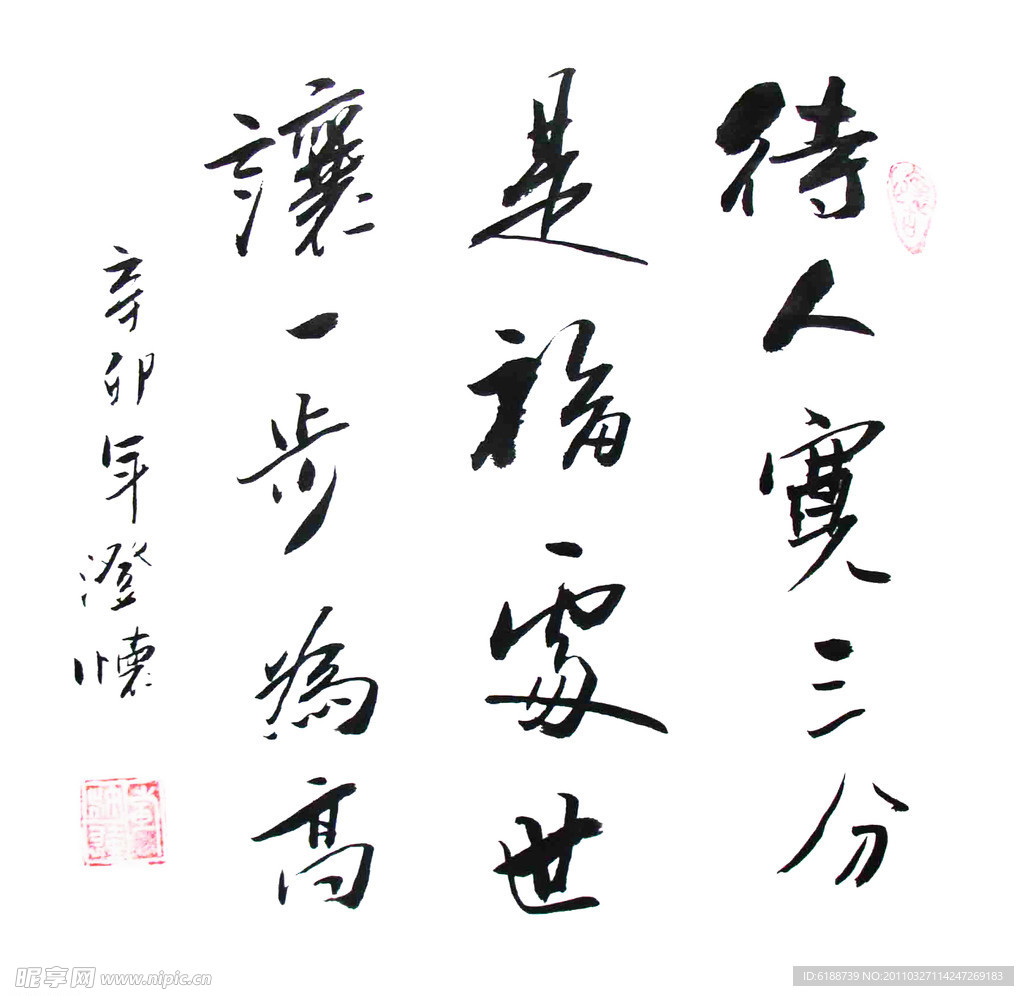 待人寬三分
是福處世
讓一步為高
辛卯年澄懷
昵享网 www.nipic.cn
ID:6188739 NO:20110327114247269183